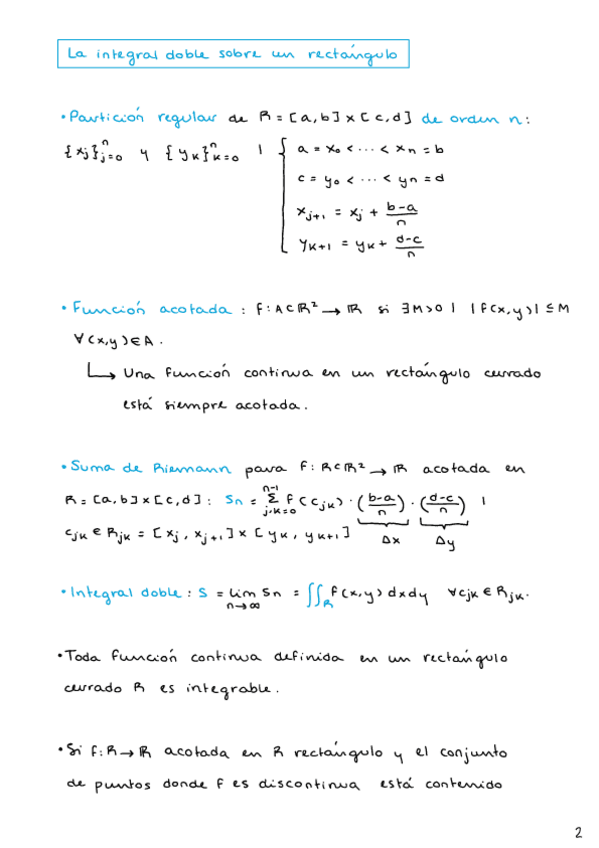 La integral doble sobre un rectángulo
• Partición regular de R = [a,b] x [c,d] de orden n:
{xj}ⁿj=0 y {yk}ⁿk=0 | { a = x₀ < ··· < xn = b
c = y₀ < ··· < yn = d
xj+1 = xj + (b-a)/n
yk+1 = yk + (d-c)/n
• Función acotada : f: A⊂ℝ² → ℝ si ∃M>0 | |f(x,y)| ≤ M
∀(x,y) ∈ A.
↳ Una función continua en un rectángulo cerrado
está siempre acotada.
• Suma de Riemann para f: R⊂ℝ² → ℝ acotada en
R = [a,b] x [c,d] : Sn = Σⁿ⁻¹j,k=0 f(cjk) · ((b-a)/n) · ((d-c)/n) |
cjk ∈ Rjk = [xj, xj+1] x [yk, yk+1] Δx Δy
• Integral doble : S = lim n→∞ Sn = ∬R f(x,y) dxdy ∀cjk ∈ Rjk.
• Toda función continua definida en un rectángulo
cerrado R es integrable.
• Si f: R → ℝ acotada en R rectángulo y el conjunto
de puntos donde f es discontinua está contenido
2